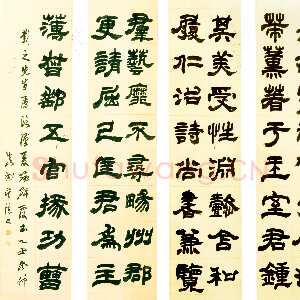 帶薰著于王室君鍾
其美受性淵懿含和
履仁治詩尚書兼覽
羣藝靡不尋暢州郡
更請屈己匡君為主
薄督郵五官掾功曹